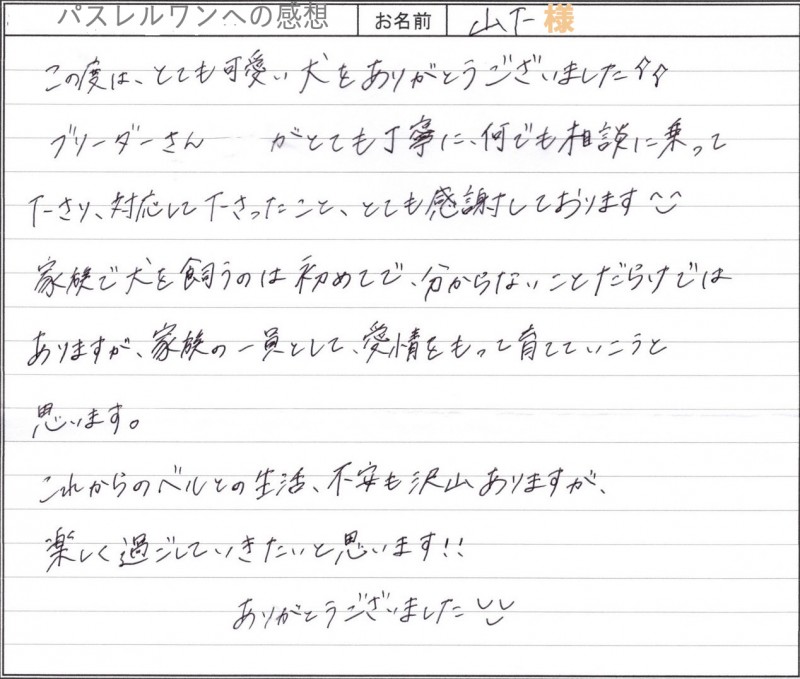 パスレルワンへの感想 お名前 山下 様
この度は、とても可愛い犬をありがとうございました
ブリーダーさん がとても丁寧に、何でも相談に乗って
下さり、対応して下さったこと、とても感謝しております
家族で犬を飼うのは初めてで、分からないことだらけでは
ありますが、家族の一員として、愛情をもって育てていこうと
思います。
これからのベルとの生活、不安も沢山ありますが、
楽しく過ごしていきたいと思います!!
ありがとうございました